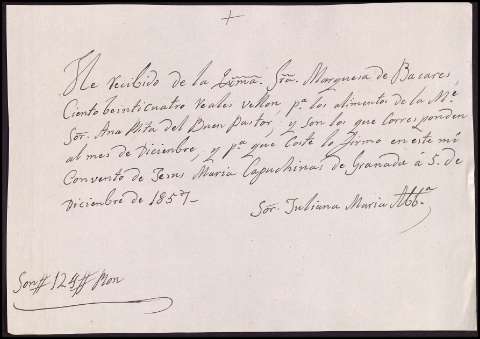 +
He recibido de la Exma. Sra. Marquesa de Bacares,
Ciento beinticuatro reales vellon pa. los alimentos de la Me.
Sor. Ana Rita del Buen Pastor, y son los que corresponden
al mes de Diciembre, y pa. que Coste lo firmo en este mi
Convento de Jesus Maria Capuchinas de Granada á 5. de
Diciembre de 1857
Sor. Juliana Maria Abb.a
Son # 124 # Ron